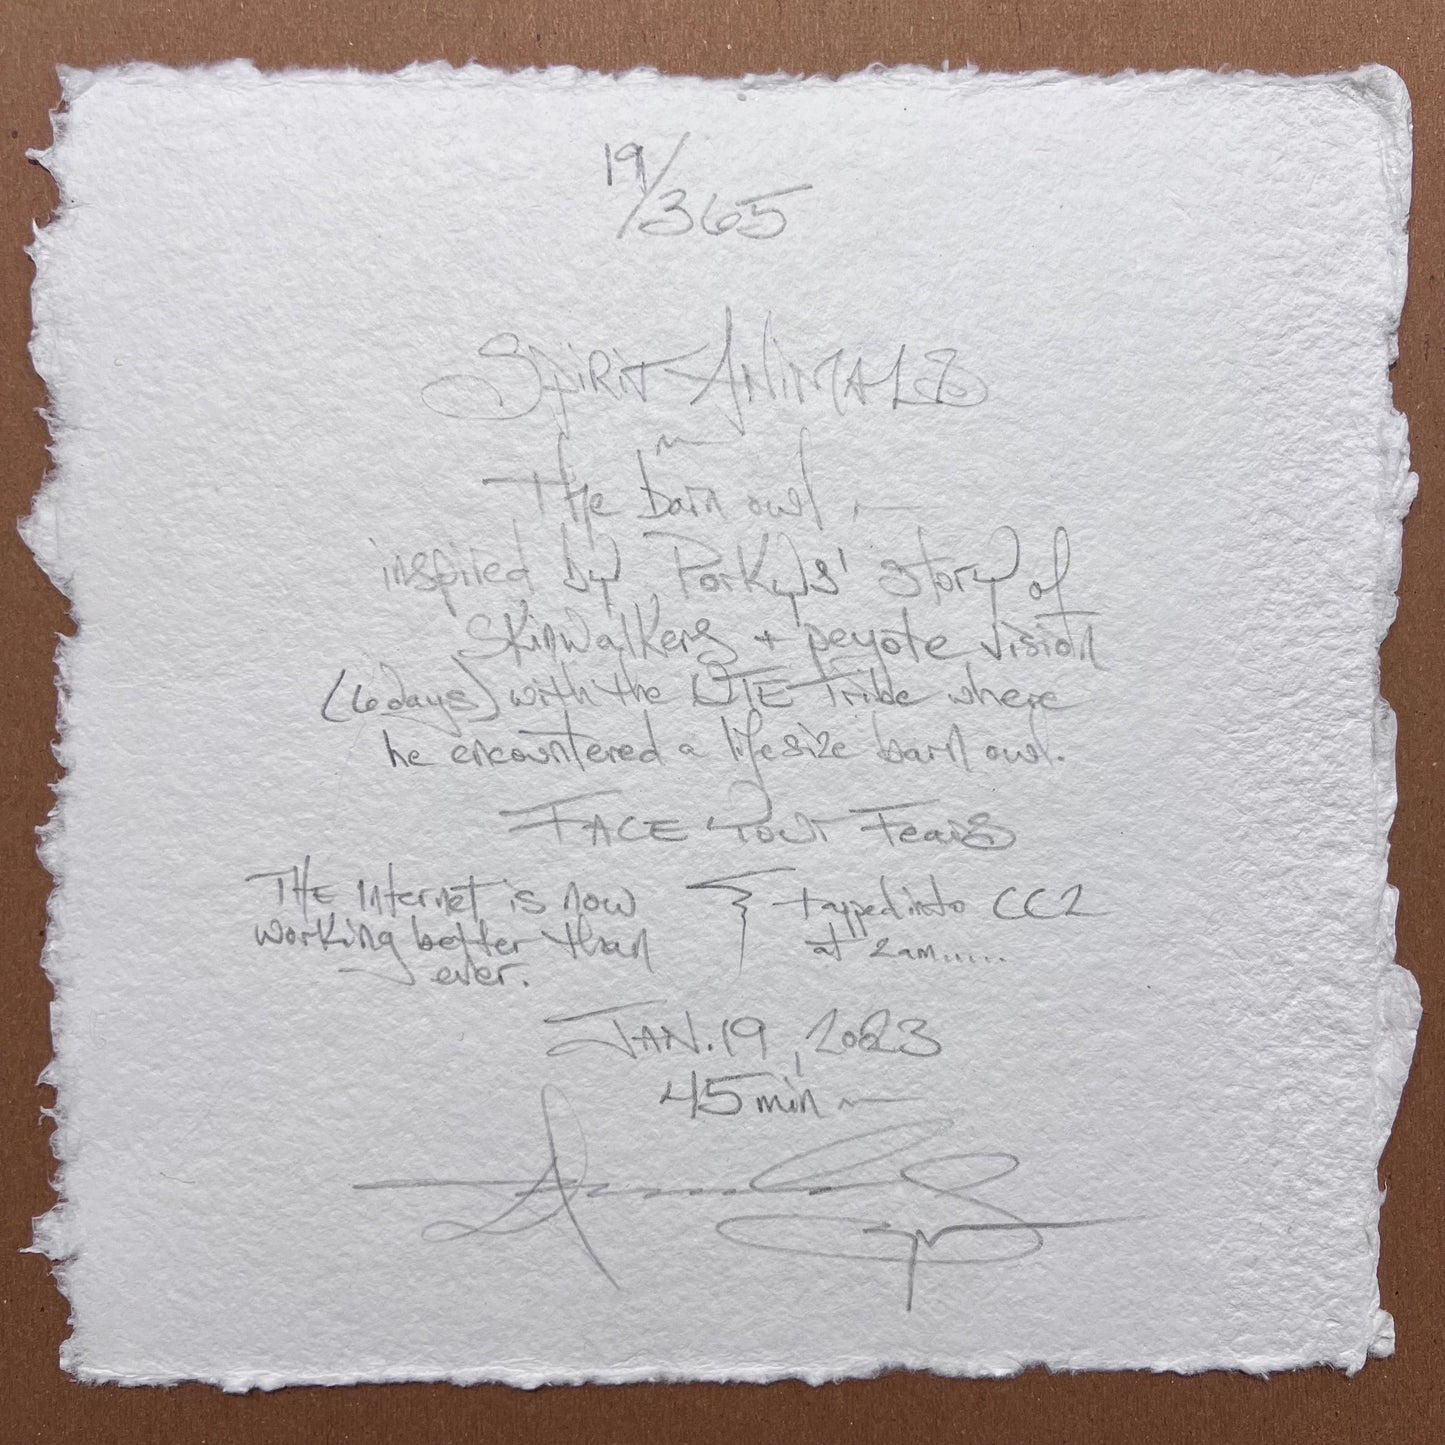 19/365
SPIRIT ANIMALS
The barn owl
inspired by Porkys' story of
skinwalkers + peyote vision
(6 days) with the UTE Tribe where
he encountered a lifesize barn owl.
FACE Your Fears
THE internet is now
working better than
ever.
} tapped into CC2
at 2am.....
JAN. 19, 2023
45 min